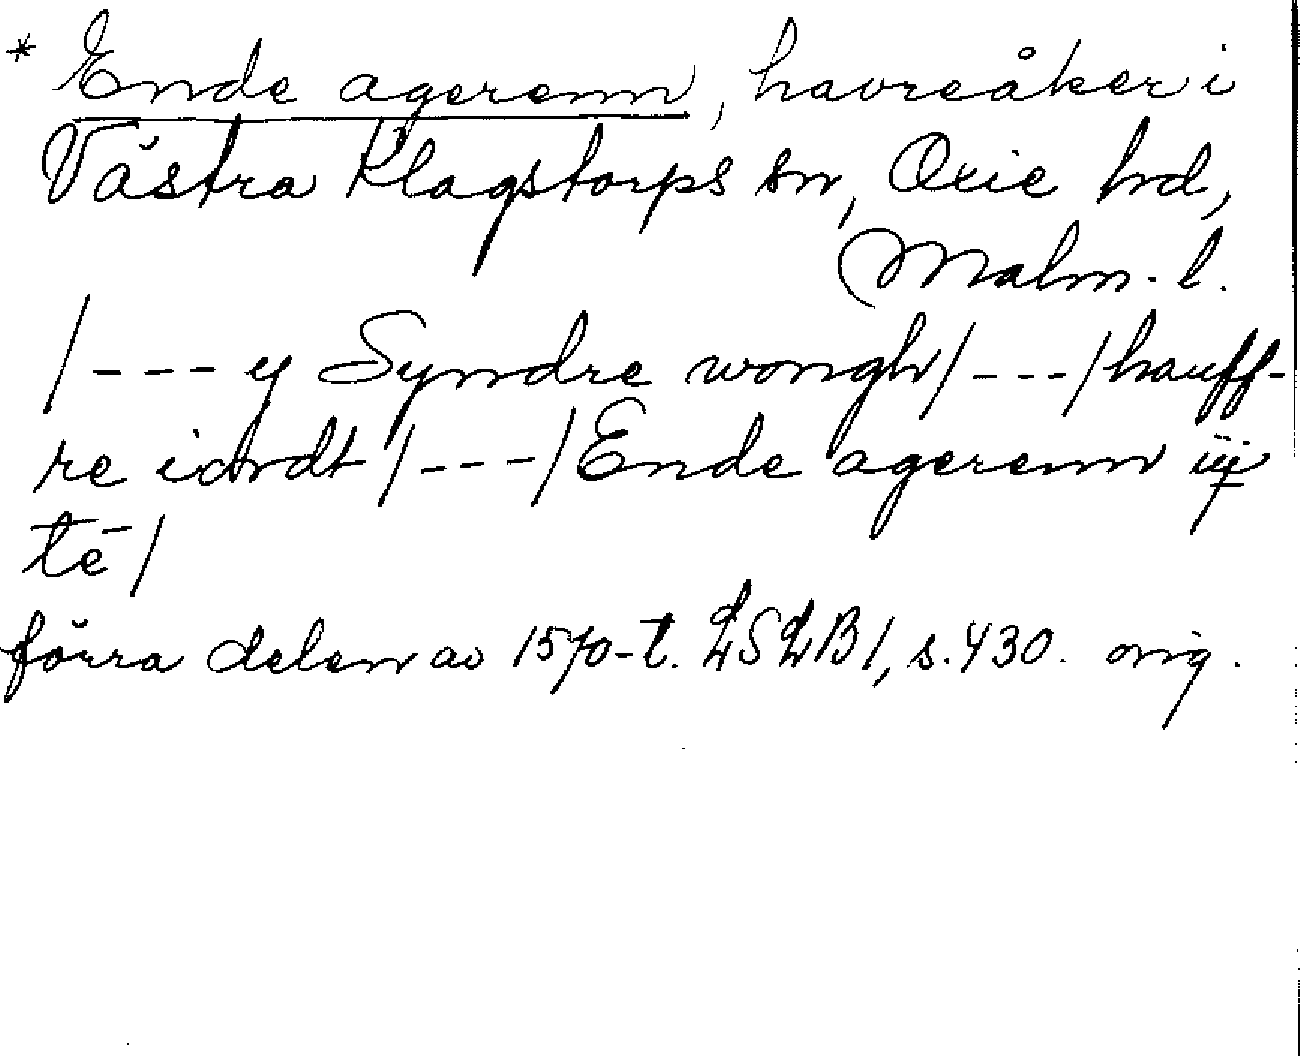 * Ende agerenn, havreåker i
Västra Klagstorps sn, Oxie hd,
Malm. l.
/--- y Syndre wongh/---/hauff-
re iordt/---/Ende agerenn iij
tē/
förra delen av 1570-t. LSLB1, s. 430. orig.